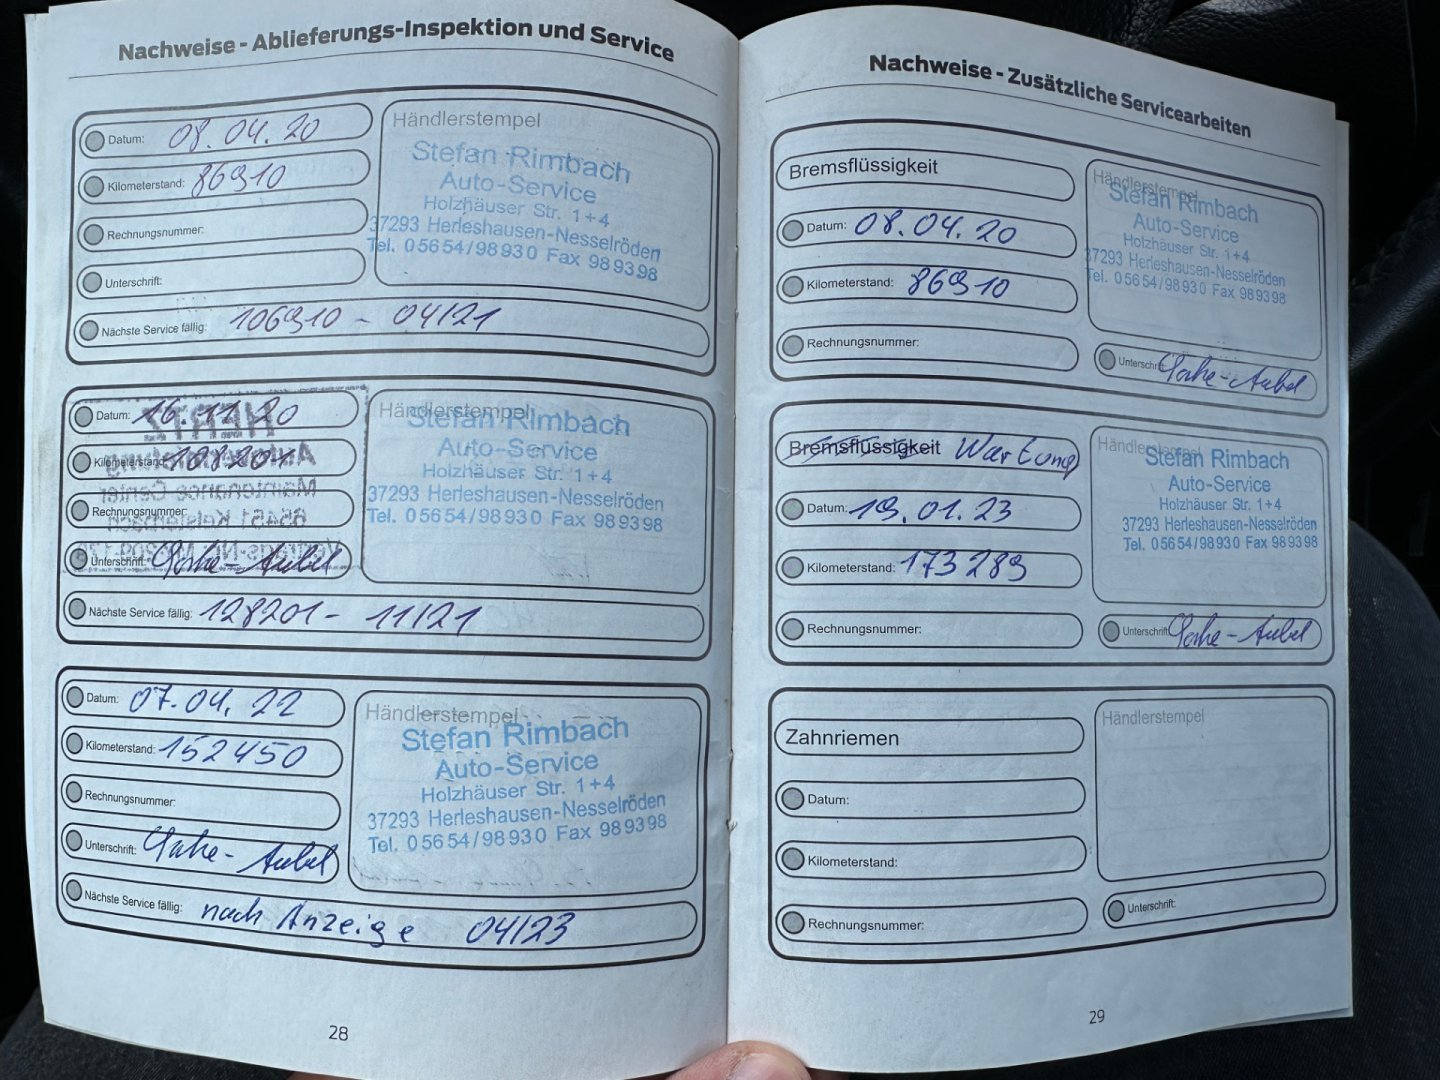 Nachweise - Ablieferungs-Inspektion und Service
Datum: 08.04.20
Kilometerstand: 86910
Rechnungsnummer:
Unterschrift:
Nächste Service fällig: 106910 - 04/21
Händlerstempel
Stefan Rimbach
Auto-Service
Holzhäuser Str. 1+4
37293 Herleshausen-Nesselröden
Tel. 05654/98930 Fax 989398
Datum: 16.11.20
Kilometerstand: 108201
Rechnungsnummer:
Unterschrift:
Nächste Service fällig: 128201 - 11/21
Händlerstempel
Stefan Rimbach
Auto-Service
Holzhäuser Str. 1+4
37293 Herleshausen-Nesselröden
Tel. 05654/98930 Fax 989398
Datum: 07.04.22
Kilometerstand: 152450
Rechnungsnummer:
Unterschrift:
Nächste Service fällig: nach Anzeige 04/23
Händlerstempel
Stefan Rimbach
Auto-Service
Holzhäuser Str. 1+4
37293 Herleshausen-Nesselröden
Tel. 05654/98930 Fax 989398
28
Nachweise - Zusätzliche Servicearbeiten
Bremsflüssigkeit
Datum: 08.04.20
Kilometerstand: 86910
Rechnungsnummer:
Händlerstempel
Stefan Rimbach
Auto-Service
Holzhäuser Str. 1+4
37293 Herleshausen-Nesselröden
Tel. 05654/98930 Fax 989398
Unterschrift:
Bremsflüssigkeit Wartung
Datum: 19.01.23
Kilometerstand: 173289
Rechnungsnummer:
Händlerstempel
Stefan Rimbach
Auto-Service
Holzhäuser Str. 1+4
37293 Herleshausen-Nesselröden
Tel. 05654/98930 Fax 989398
Unterschrift:
Zahnriemen
Datum:
Kilometerstand:
Rechnungsnummer:
Händlerstempel
Unterschrift:
29